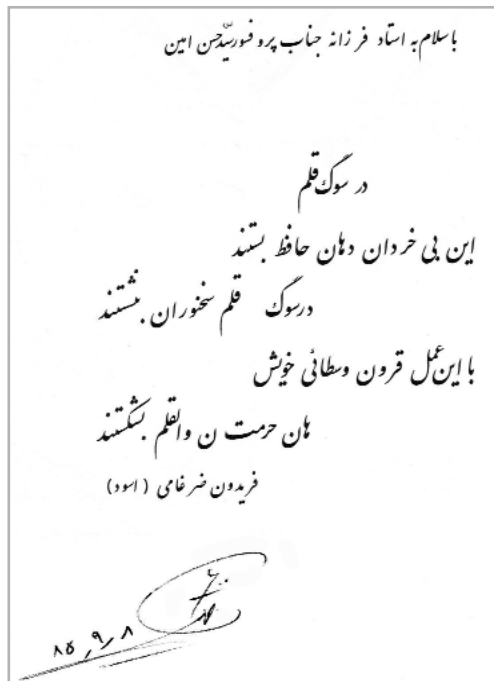 با سلام به استاد فرزانه جناب پروفسور سیّد حسن امین
در سوگ قلم
این بی خردان دهان حافظ بستند
در سوگ قلم سخنوران بنشستند
با این عمل قرون وسطائی خویش
هان حرمت ن والقلم بشکستند
فریدون ضرغامی (اسود)
۸۵/۹/۸